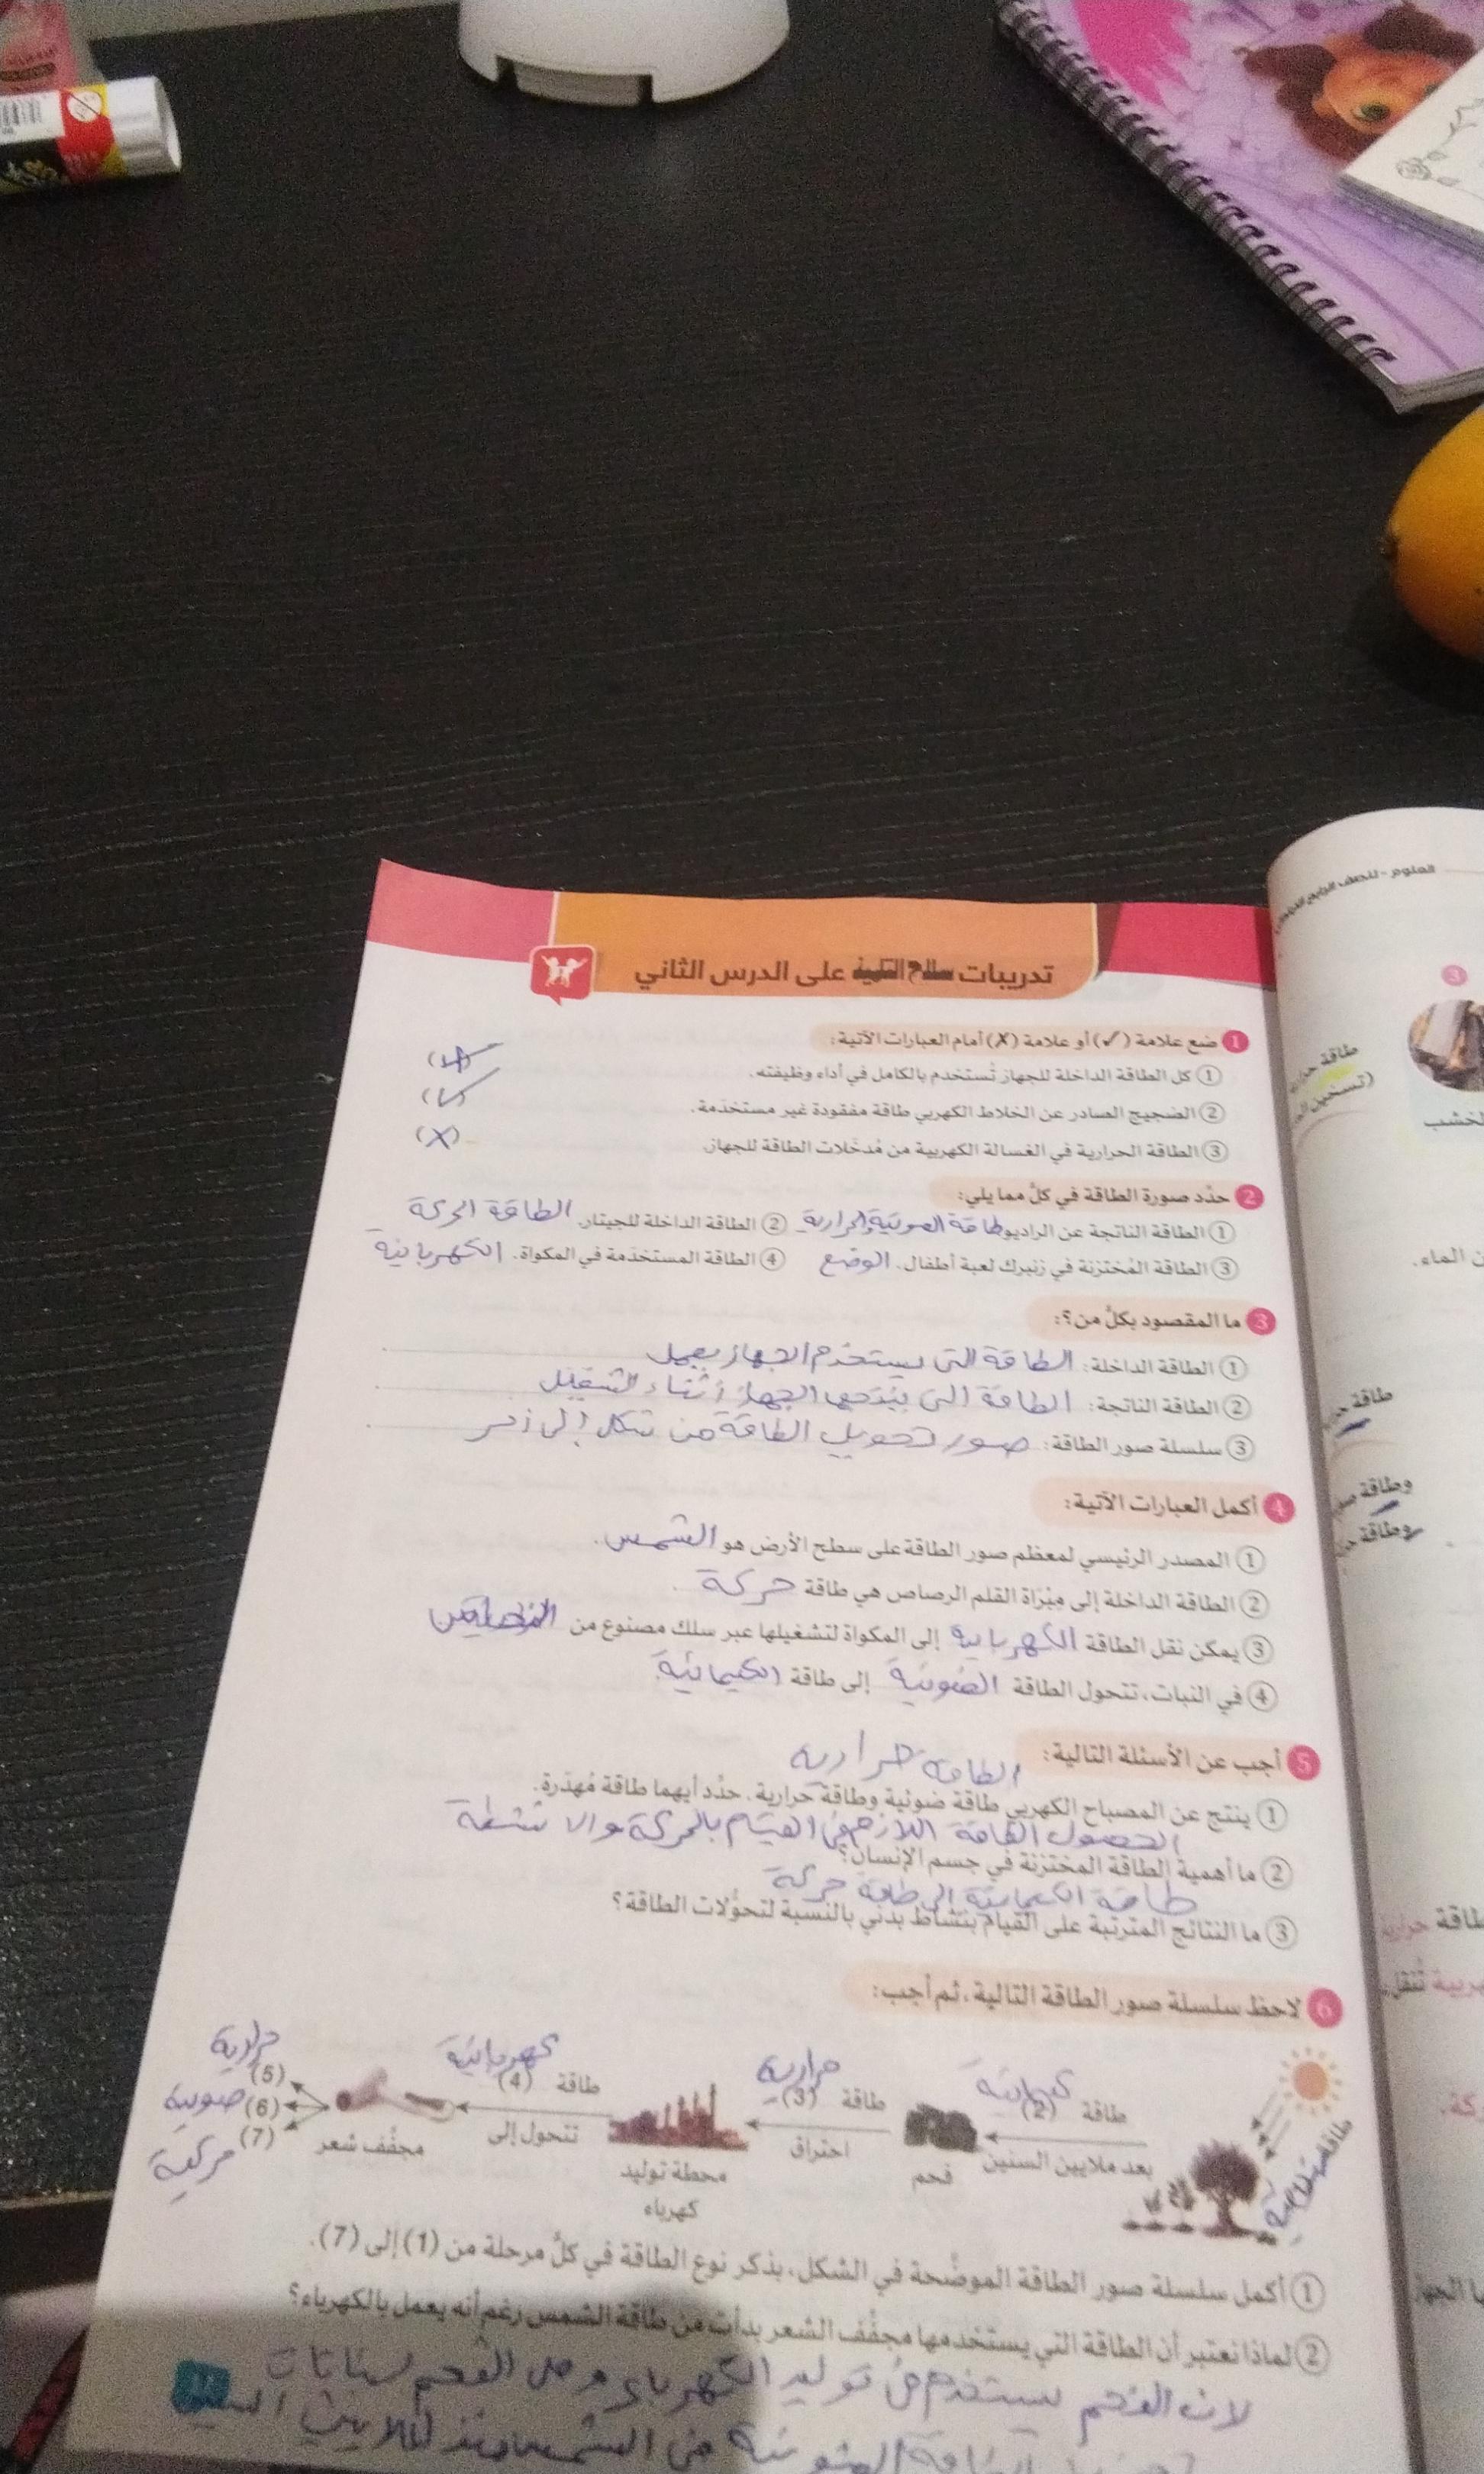 تدريبات سلاح التلميذ على الدرس الثاني
1 ضع علامة (✓) أو علامة (✗) أمام العبارات الآتية:
① كل الطاقة الداخلة للجهاز تُستخدم بالكامل في أداء وظيفته.
② الضجيج الصادر عن الخلاط الكهربي طاقة مفقودة غير مستخدمة. (✓)
③ الطاقة الحرارية في الغسالة الكهربية من مُدخَلات الطاقة للجهاز. (X)
2 حدِّد صورة الطاقة في كلٍّ مما يلي:
① الطاقة الناتجة عن الراديو طاقة الصوتية والحرارية ② الطاقة الداخلة للجيتار. الطاقة الحركة
③ الطاقة المُختزنة في زنبرك لعبة أطفال. الوضع ④ الطاقة المستخدَمة في المكواة. الكهربائية
3 ما المقصود بكلٍّ من؟:
① الطاقة الداخلة: الطاقة التى يستخدم الجهاز يعمل
② الطاقة الناتجة: الطاقة التى ينتجها الجهاز أثناء التشغيل
③ سلسلة صور الطاقة: صور تحويل الطاقة من شكل إلى
4 أكمل العبارات الآتية:
① المصدر الرئيسي لمعظم صور الطاقة على سطح الأرض هو الشمس.
② الطاقة الداخلة إلى مِبْرَاة القلم الرصاص هي طاقة حركة.
③ يمكن نقل الطاقة الكهربائية إلى المكواة لتشغيلها عبر سلك مصنوع من
④ في النبات، تتحول الطاقة الضوئية إلى طاقة الكيمائية.
5 أجب عن الأسئلة التالية:
الطاقة حرارية
① ينتج عن المصباح الكهربي طاقة ضوئية وطاقة حرارية. حدِّد أيهما طاقة مُهدَرة.
الحصول الطاقة اللازم في القيام بالحركة والانشطة
② ما أهمية الطاقة المختزنة في جسم الإنسان؟
طاقة الكيمائية إلى طاقة حركة
③ ما النتائج المترتبة على القيام بنشاط بدني بالنسبة لتحوُّلات الطاقة؟
6 لاحظ سلسلة صور الطاقة التالية، ثم أجب:
كيمائية
طاقة (2)
بعد ملايين السنين
فحم
حرارية
طاقة (3)
احتراق
محطة توليد
كهرباء
كهربائية
طاقة (4)
تتحول إلى
مجفِّف شعر
حرارية
(5)
صوتية (6)
(7)
حركية
① أكمل سلسلة صور الطاقة الموضَّحة في الشكل، بذكر نوع الطاقة في كلِّ مرحلة من (1) إلى (7).
② لماذا نعتبر أن الطاقة التي يستخدمها مجفِّف الشعر بدأت من طاقة الشمس رغم أنه يعمل بالكهرباء؟
لان الفحم يستخدم في توليد الكهرباء الفحم
الطاقة الضوئية من الشمس منذ ملايين
العلوم - للصف الرابع
3
الخشب
ن الماء.